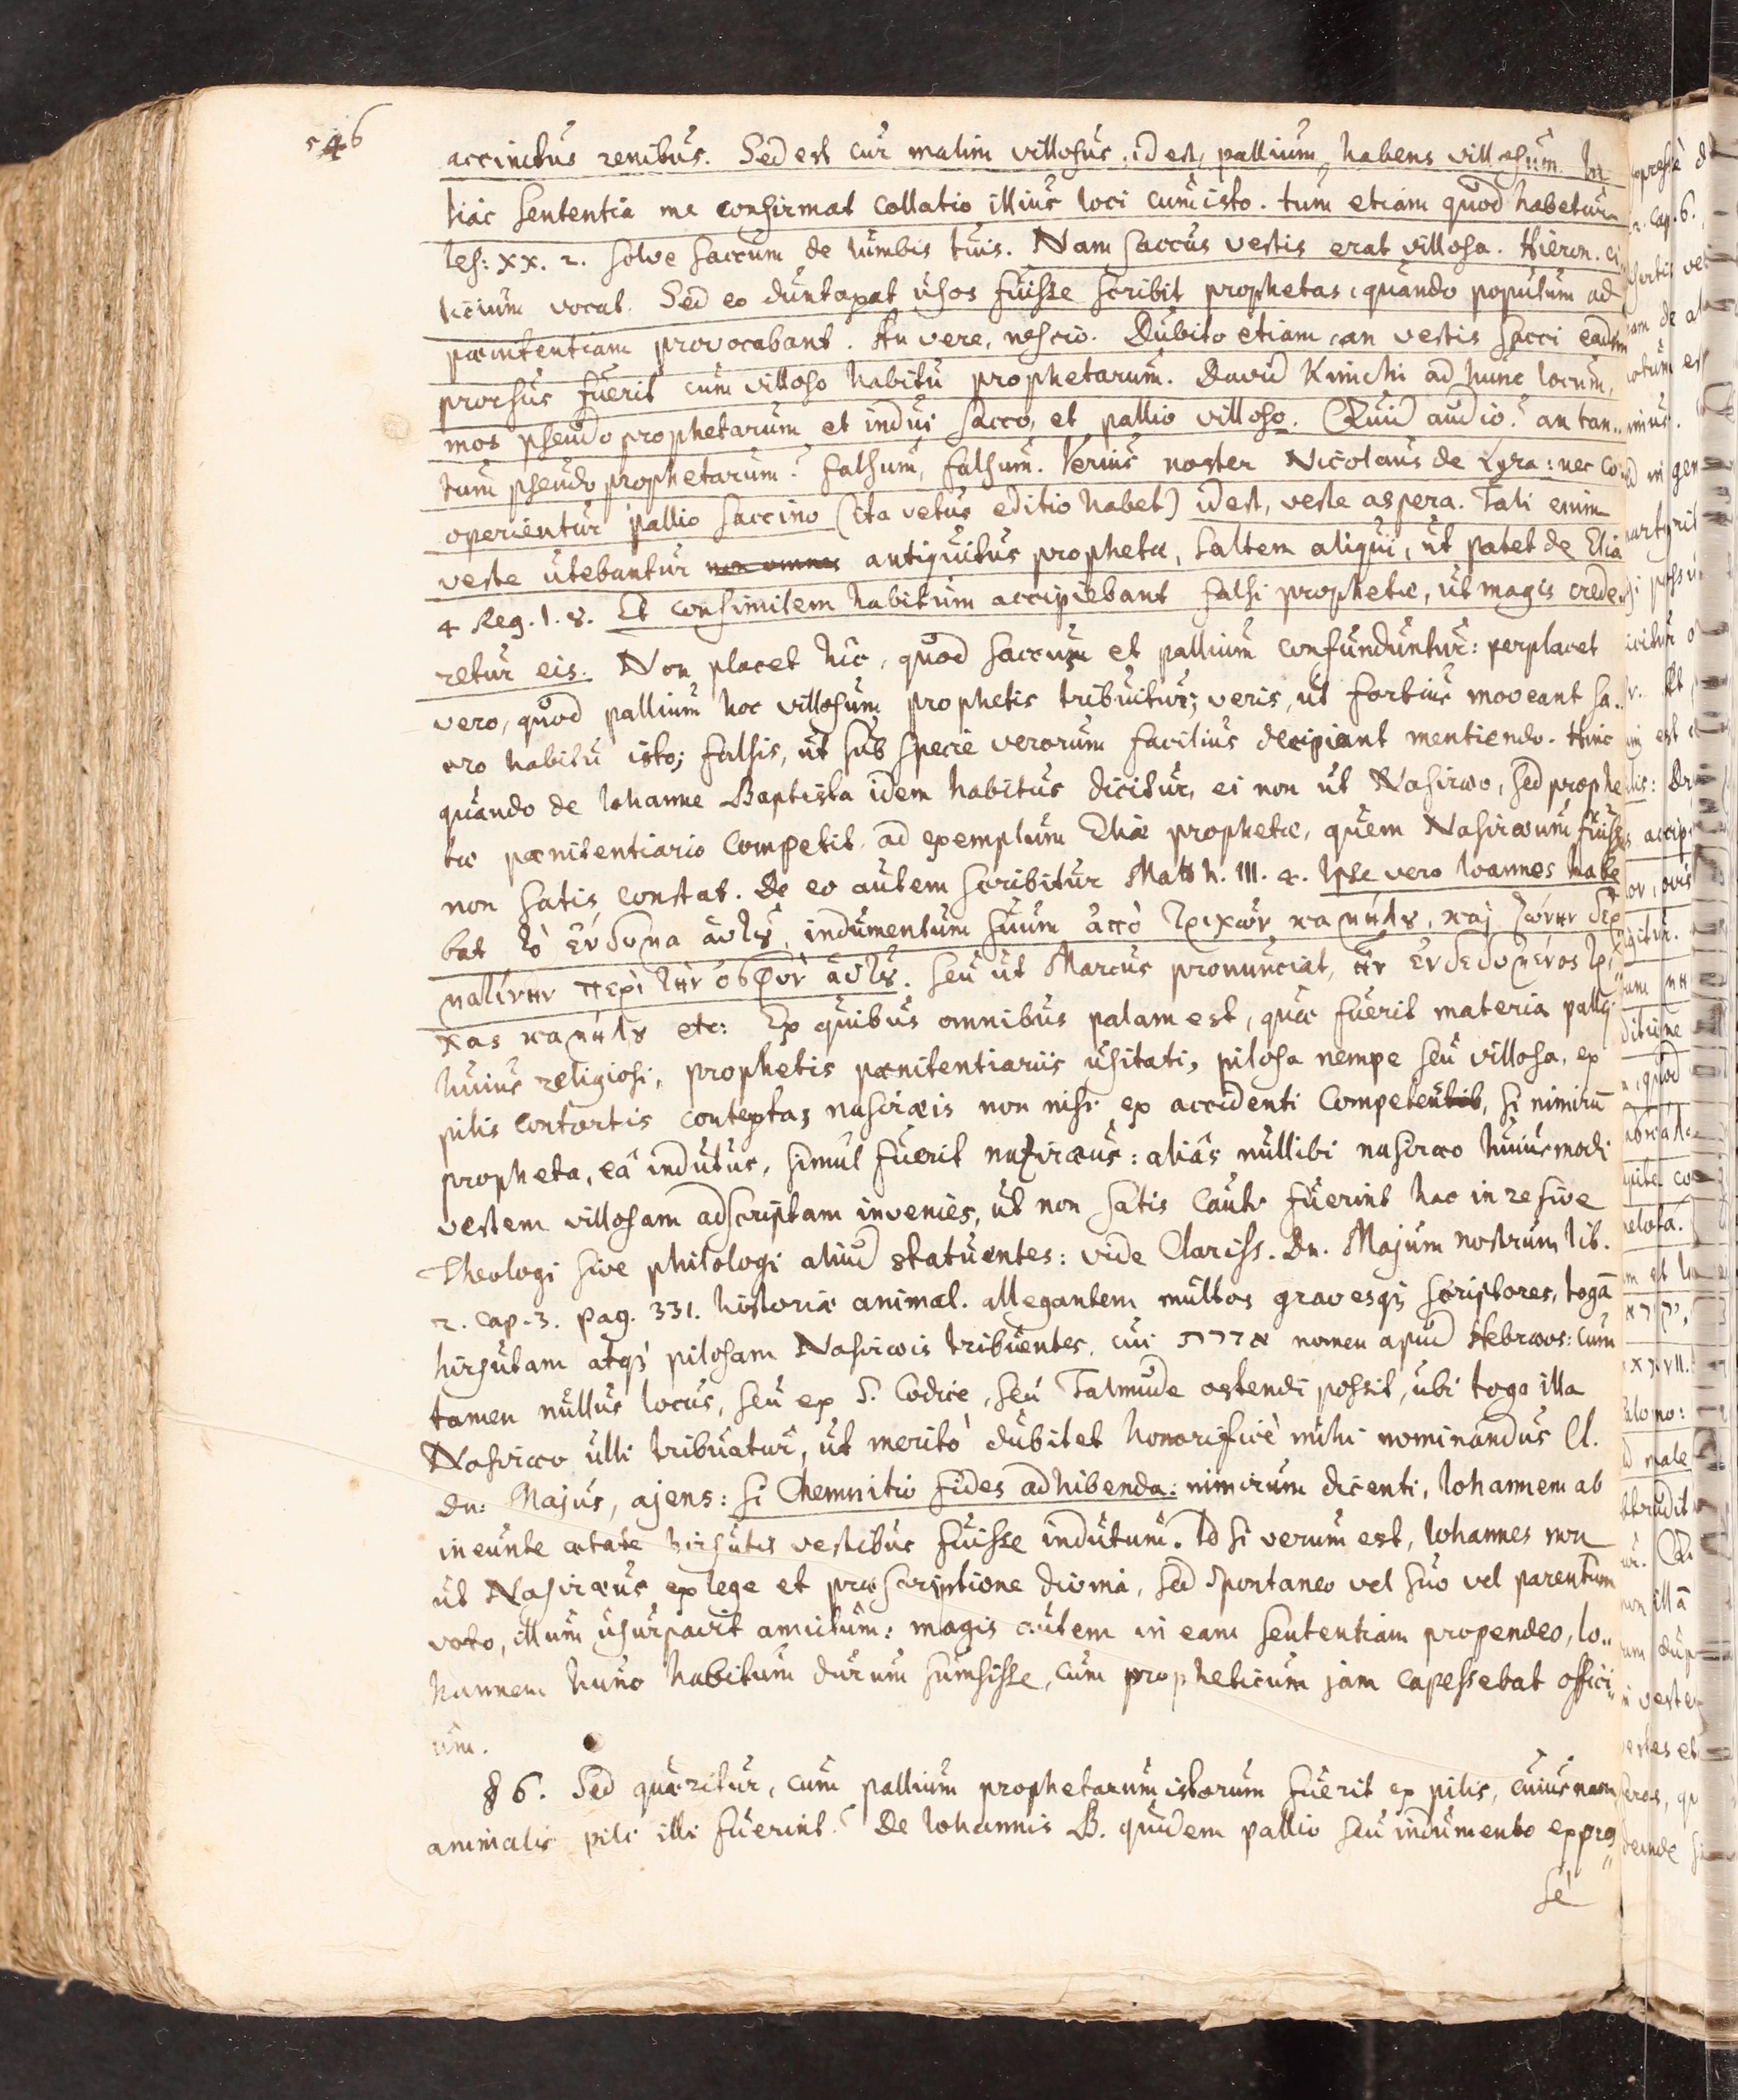 546
accinctus renibus. Sed est cur malim villosus, id est, pallium habens villosum. In
hac sententia me confirmat collatio illius loci cum isto. tum etiam quod habetur
Ies: XX. 2. solve saccum de lumbis tuis. Nam saccus vestis erat villosa. Hieron. ci
licium vocat. Sed eo duntaxat usos fuisse scribit prophetas, quando populum ad
pœnitentiam provocabant. An vere, nescio. Dubito etiam, an vestis sacci eadem
prorsus fuerit cum villoso habitu prophetarum. David Kimchi ad hunc locum,
mos pseudoprophetarum et indui sacco, et pallio villoso. Quid audio? an tan..
tum pseudoprophetarum? falsum, falsum. Verius noster Nicolaus de Lyra: nec co
operientur pallio saccino (ita vetus editio habet) id est, veste aspera. Tali enim
veste utebantur non omnes antiquitus prophetæ, saltem aliqui, ut patet de Elia
4 Reg. 1. 8. Et consimilem habitum accipiebant falsi prophetæ, ut magis crede..
retur eis. Non placet hic, quod saccus et pallium confunduntur: perplacet
vero, quod pallium hoc villosum prophetis tribuitur; veris, ut fortius moveant sa..
cro habitu isto; falsis, ut sub specie verorum facilius decipiant mentiendo. Hinc
quando de Iohanne Baptista idem habitus dicitur, ei non ut Nasiræo, sed prophe
tæ pœnitentiario competit, ad exemplum Eliæ prophetæ, quem Nasiræum fuisse
non satis constat. De eo autem scribitur Matth. III. 4. Ipse vero Ioannes habe
bat τὸ ἔνδυμα αὐτȣ͂, indumentum suum ἀπὸ τριχῶν καμήλȣ, καὶ ζώνην δερ
ματίνην περὶ τὴν ὀσφὺν αὐτȣ͂. seu ut Marcus pronunciat, ἦν ἐνδεδυμένος τρί
χας καμήλȣ etc: Ex quibus omnibus palam est, quæ fuerit materia pallij
huius religiosi, prophetis pœnitentiariis usitati, pilosa nempe seu villosa, ex
pilis contortis contexta; nasiræis non nisi ex accidenti competens, si nimirū
propheta, eâ indutus, simul fuerit naziræus: aliâs nullibi nasiræo huiusmodi
vestem villosam adscriptam invenies, ut non satis caute fuerint hac in re sive
Theologi sive philologi aliud statuentes: vide Clariss. Dn. Majum nostrum lib.
2. cap. 3. pag. 331. historiæ animal. allegantem multos gravesq; scriptores, togā
hirsutam atq; pilosam Nasiræis tribuentes, cui אדרת nomen apud Hebræos: cum
tamen nullus locus, seu ex S. Codice, seu Talmude ostendi possit, ubi toga illa
Nasiræo ulli tribuatur, ut meritò dubitet honorificè mihi nominandus Cl.
Dn: Majus, ajens: si Chemnitio fides adhibenda: nimirum dicenti, Iohannem ab
ineunte ætate hirsutis vestibus fuisse indutum. Id si verum est, Iohannes non
ut Nasiræus ex lege et præscriptione divina, sed spontaneo vel suo vel parentum
voto, illum usurpavit amictum: magis autem in eam sententiam propendeo, Io..
hannem hunc habitum durum sumsisse, cum propheticum jam capessebat offici
um.
§ 6. Sed quæritur, cum pallium prophetarum istorum fuerit ex pilis, cuiusnam
animalis pili illi fuerint? De Iohannis B. quidem pallio seu indumento expres
sè